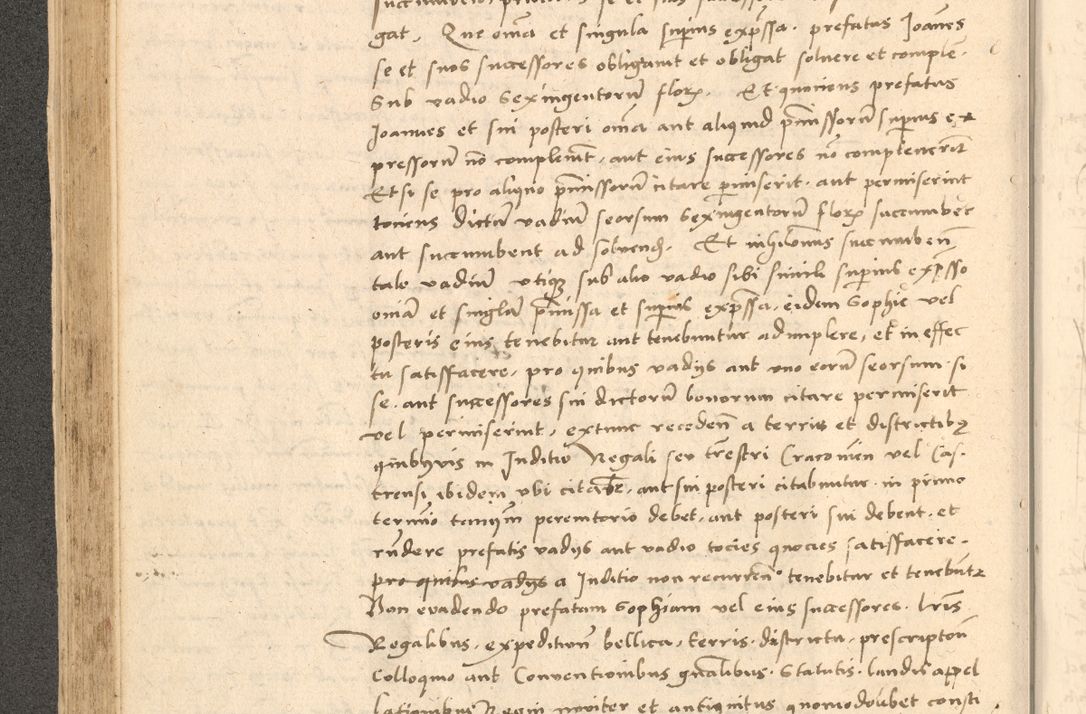 gat. Que oma et singula supius expssa. prefatus Joanes
se et suos successores obligauit et obligat soluere et comple.
Sub vadio Sexingentoru flor. Et quociens prefatus
Joannes et sui posteri oma aut aliquid pmissoru supius ex
pressoru no compleuit, aut eius successores no compleuerit
Et si se pro aliquo pmissoru citare pmiserit. aut permiserint
tociens dictu vadiu seorsum Sexingentoru flor succumbet
aut succumbent ad soluend. Et nihilomus succumben
tale vadiu utiq sub alio vadio sibi simili supius expsso
omia et singla pmissa et supius expssa, eidem Sophie vel
posteris eius tenebitur aut tenebuntur adimplere, et in effec
tu satisfacere, pro quibus vadijs aut uno eoru seorsum. si
se. aut successores sui dictoru bonorum citare permiserit
vel permiserint, extunc receden a terris et districtibq
quibusvis in Juditio Regali seu trestri Cracouien vel Cas-
trensi ibidem ubi citabr, aut sui posteri citabuntur. in primo
termio tamqm peremtorio debet, aut posteri sui debent. et
rndere prefatis vadijs aut vadio tocies quocies satisfacere.
pro quibus vadijs a Juditio non recurren tenebitur et tenebutr
Non evadendo prefatam Sophiam vel eius successores. lris
Regalibus, expeditium bellica, terris. districtu. prescripton
Colloquio aut Conventionibus gnalibus. Statutis. laudu appel
lationibus Regni noviter et antiquitus quomodolibet consti